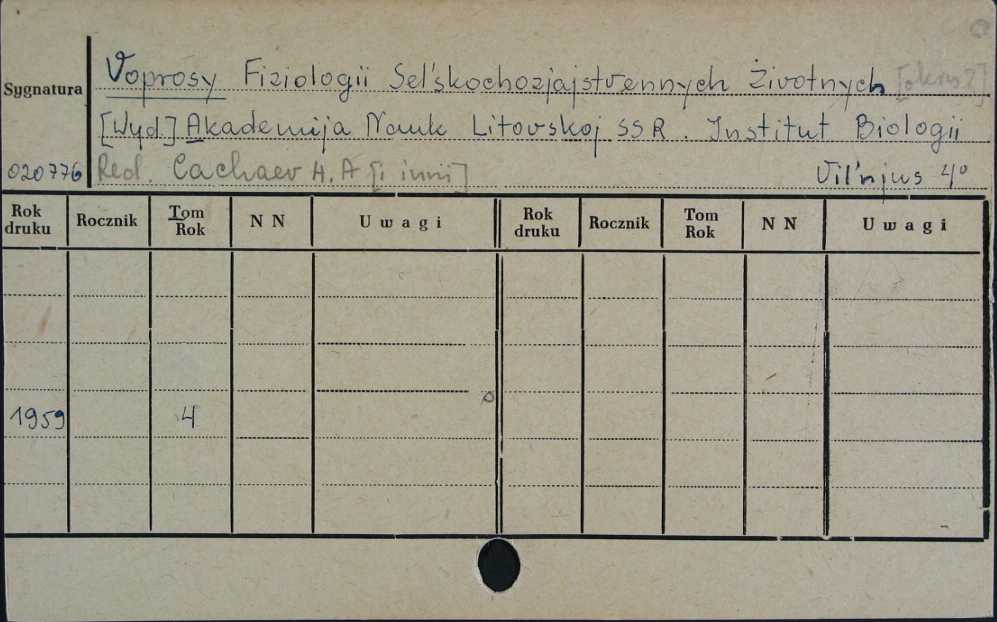 Voprosy Fiziologii Sel'skochozjajstvennych Životnych
Sygnatura
[Wyd.] Akademija Nauk Litovskoj SSR. Institut Biologii
020776 Red. Cachaev H. A [i inni] Vil'njus 4°
Rok druku Rocznik Tom Rok N N Uwagi Rok druku Rocznik Tom Rok N N Uwagi
1959 4